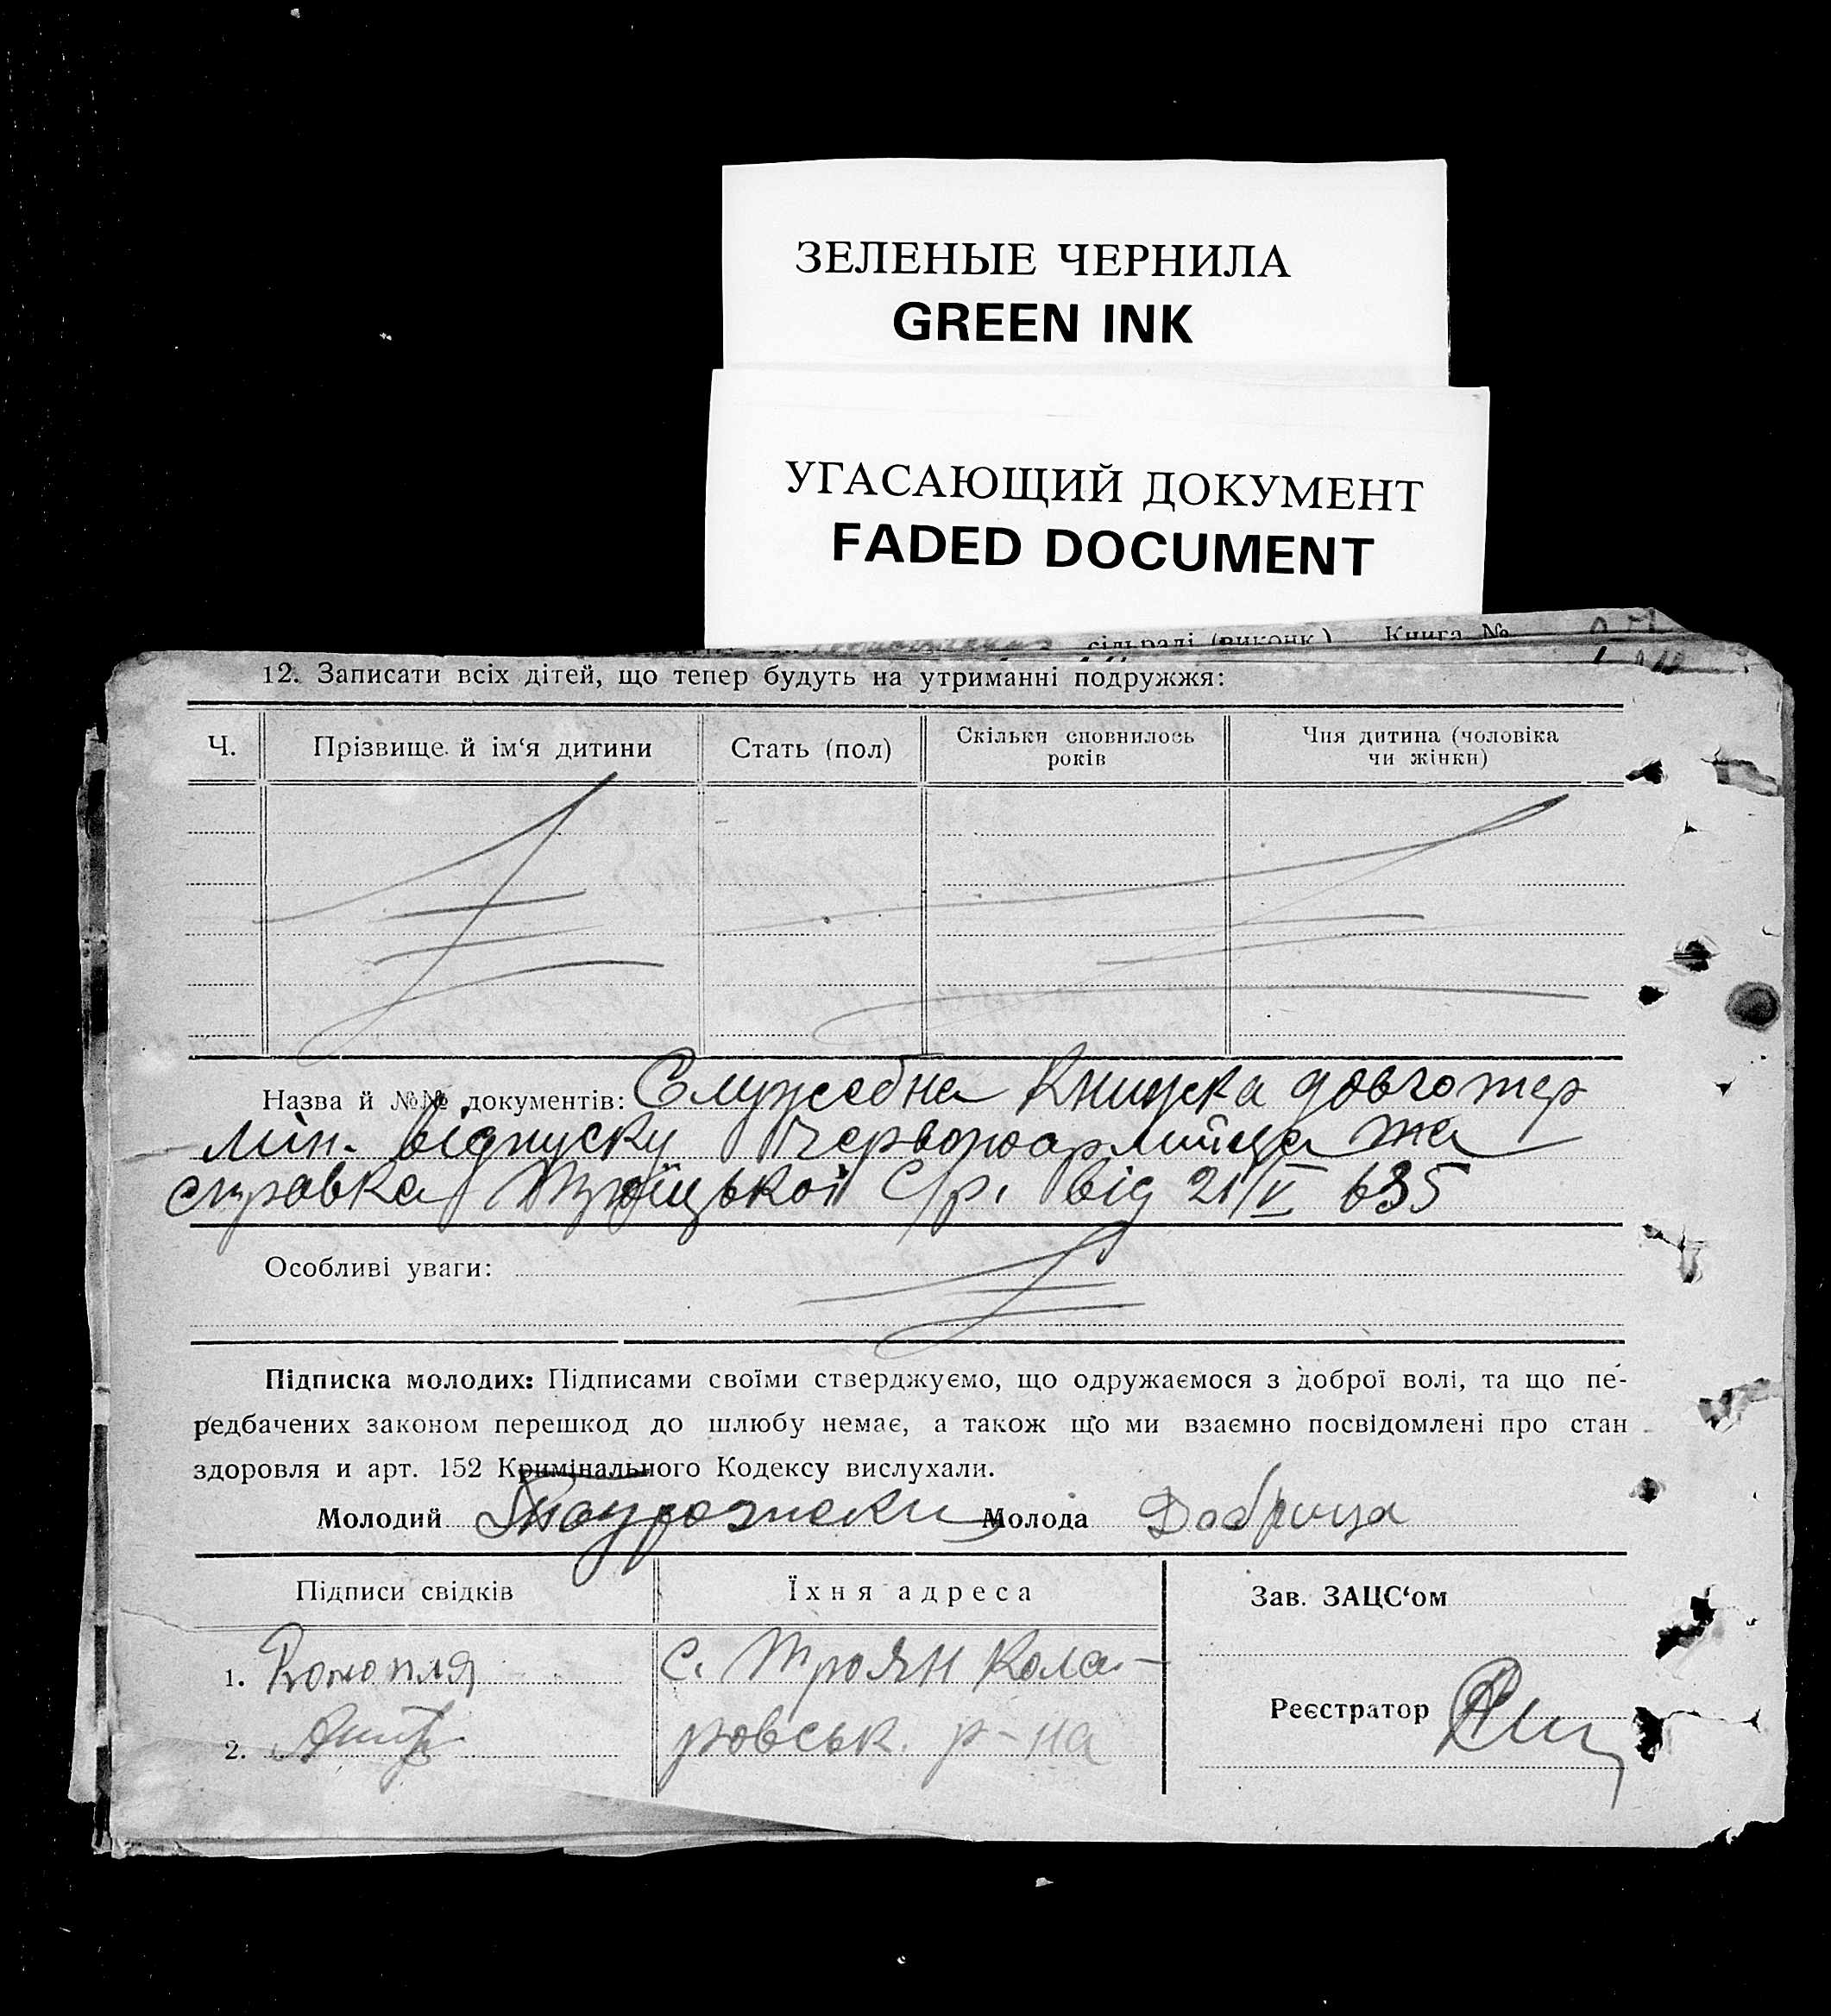 ЗЕЛЕНЫЕ ЧЕРНИЛА
GREEN INK
УГАСАЮЩИЙ ДОКУМЕНТ
FADED DOCUMENT
сільраді (виконк.) Книга №
12. Записати всіх дітей, що тепер будуть на утриманні подружжя:
Ч. Прізвище й ім‘я дитини Стать (пол) Скільки сповнилось років Чия дитина (чоловіка чи жінки)
Назва й №№ документів: Службова Книжка довготер
мін. відпуску Червоноармійця та
справка Троїцької С/р. від 21/V 635
Особливі уваги:
Підписка молодих: Підписами своїми стверджуємо, що одружаємося з доброї волі, та що пе-
редбачених законом перешкод до шлюбу немає, а також що ми взаємно посвідомлені про стан
здоровля и арт. 152 Кримінального Кодексу вислухали.
Молодий Молода Добрица
Підписи свідків Їхня адреса Зав. ЗАЦС‘ом
1. Конопля с. Троян Кола-
2. ровськ. р-на
Реєстратор